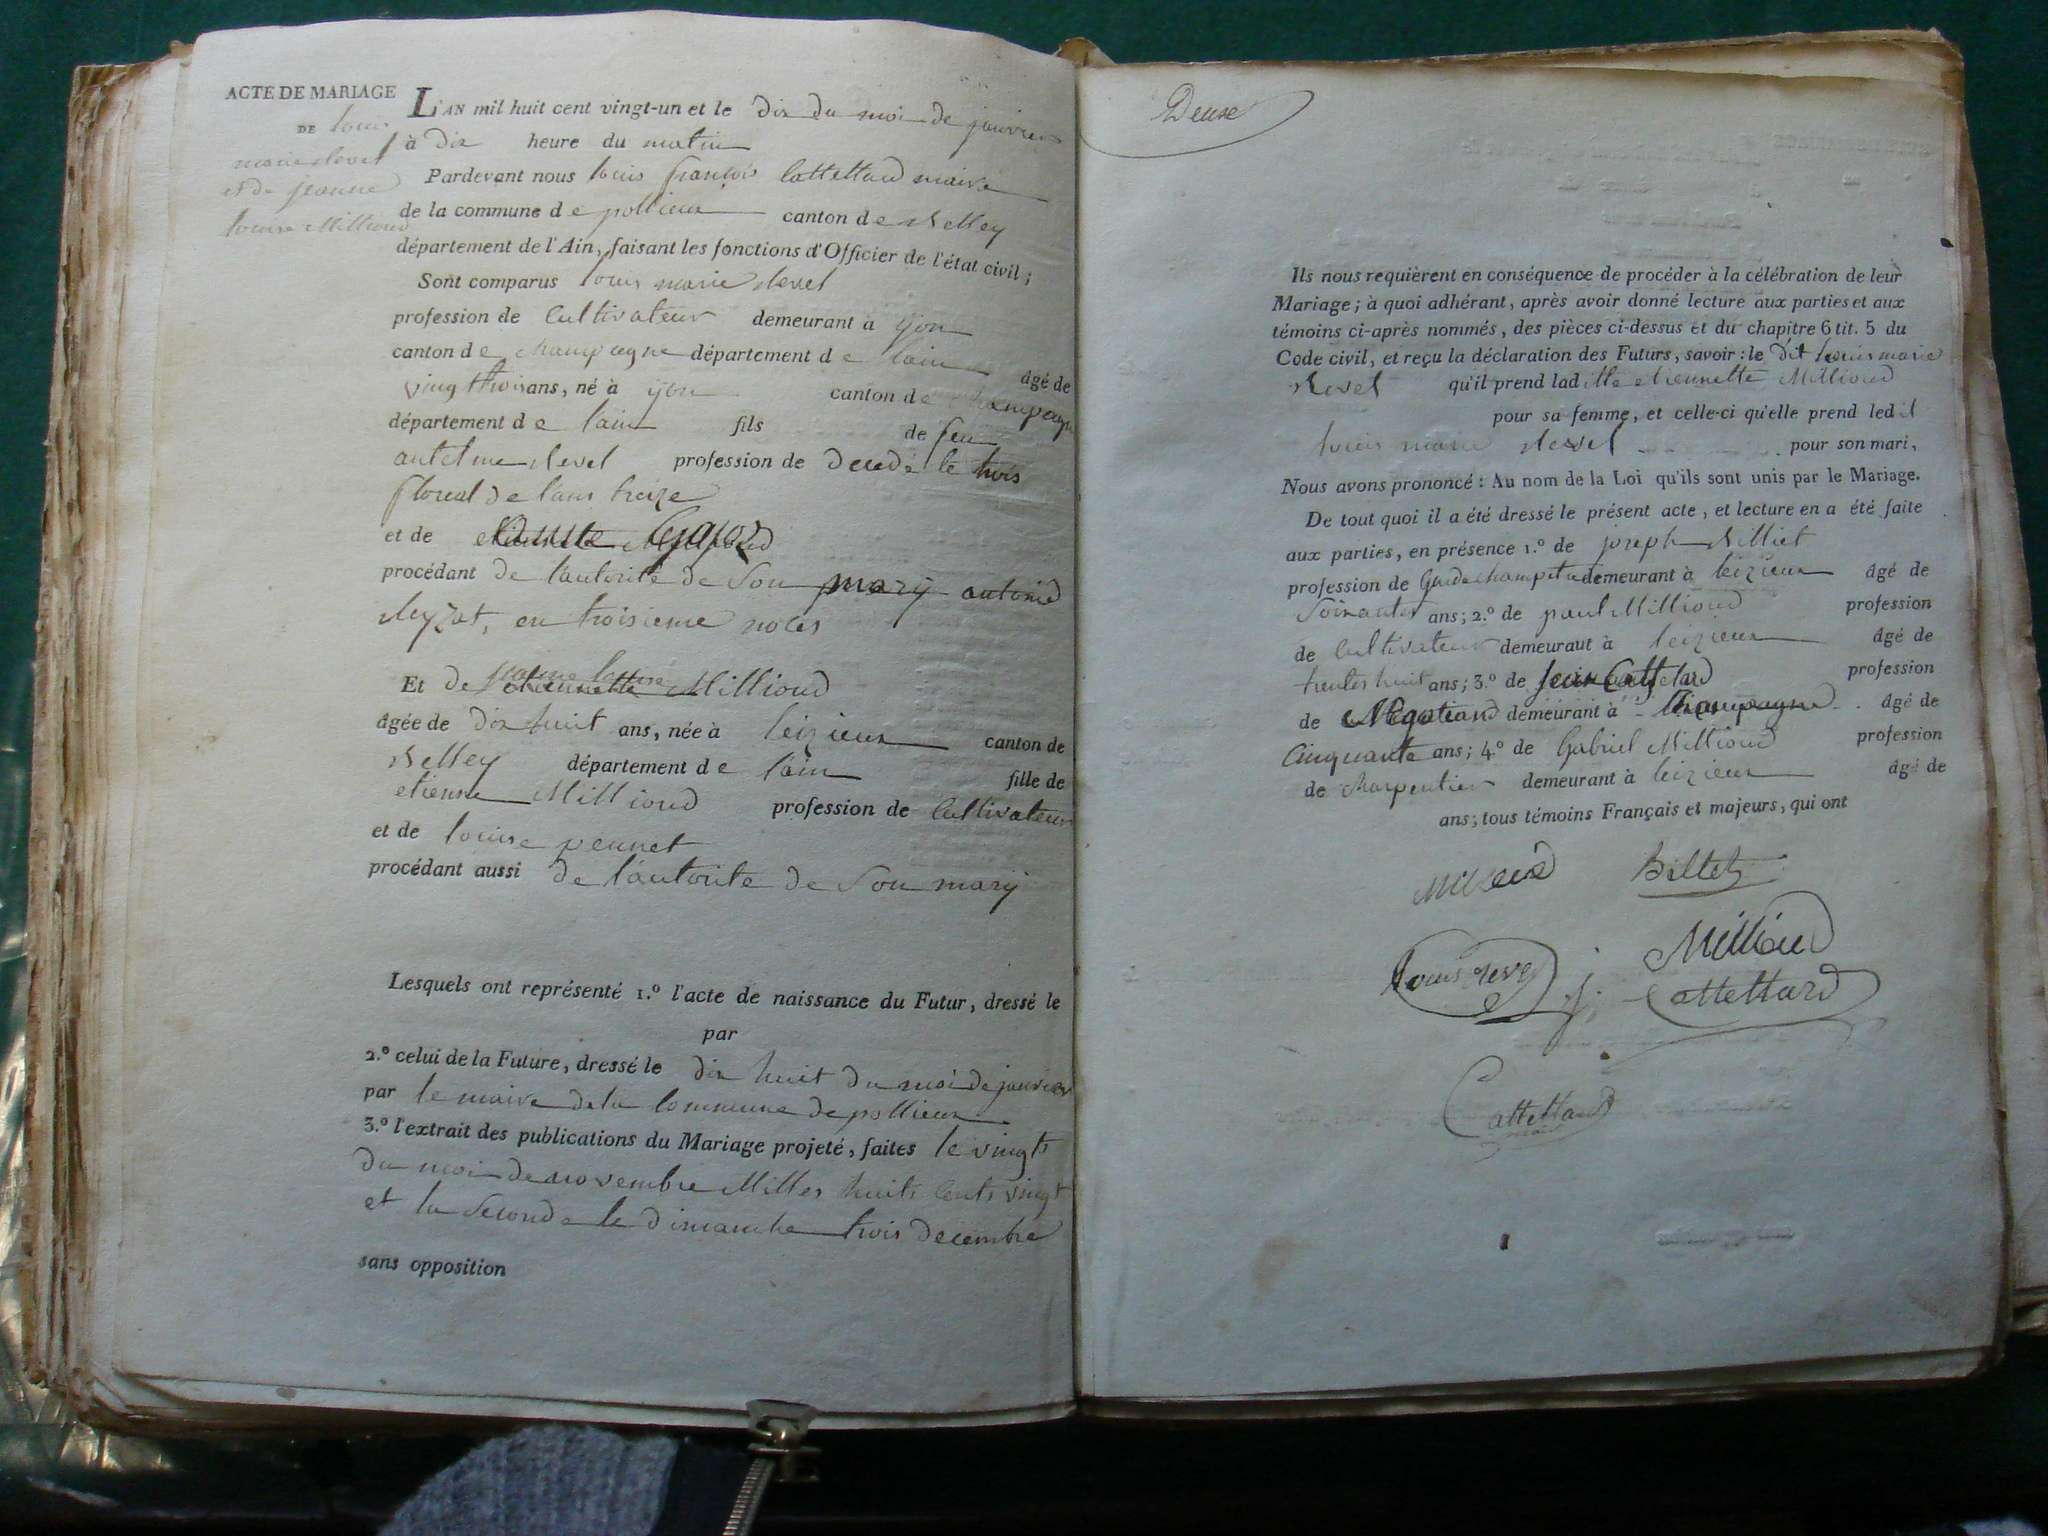 ACTE DE MARIAGE
DE louis
marie revel
et de jeanne
louise Millioud
L'AN mil huit cent vingt-un et le dix du moi de janvier
à dix heure du matin
Pardevant nous louis françois Cattettard maire
de la commune de pollieux canton de Belley
département de l'Ain, faisant les fonctions d'Officier de l'état civil;
Sont comparus louis marie revel
profession de Cultivateur demeurant à yon
canton de champagne département de lain âgé de
vingt trois ans, né à yon canton de champagne
département de lain fils de feu
antelme revel profession de decedé le trois
floreal de lans treize
et de
procédant de l'autorité de Son mary antoine
en troisieme noces
Et de jeanne louise
etiennette Millioud
âgée de dix huit ans, née à leizieux canton de
Belley département de lain fille de
etienne Millioud profession de Cultivateur
et de louise pennet
procédant aussi de l'autorite de Son mary
Lesquels ont représenté 1.º l'acte de naissance du Futur, dressé le
par
2.º celui de la Future, dressé le dix huit du moi de janvier
par le maire de la Commune de pollieux
3.º l'extrait des publications du Mariage projeté, faites le vingts
du moi de novembre Milles huits Cents vingt
et la Seconde le dimanche trois decembre
sans opposition
Deuse
Ils nous requièrent en conséquence de procéder à la célébration de leur
Mariage; à quoi adhérant, après avoir donné lecture aux parties et aux
témoins ci-après nommés, des pièces ci-dessus et du chapitre 6 tit. 5 du
Code civil, et reçu la déclaration des Futurs, savoir: le dit louis marie
Revel qu'il prend laditte etiennette Millioud
pour sa femme, et celle-ci qu'elle prend ledit
louis marie revel pour son mari,
Nous avons prononcé: Au nom de la Loi qu'ils sont unis par le Mariage.
De tout quoi il a été dressé le présent acte, et lecture en a été faite
aux parties, en présence 1.º de joseph Billiet
profession de Garde champetre demeurant à leizieux âgé de
Soixantes ans; 2.º de paul Millioud profession
de Cultivateur demeurant à leizieux âgé de
trentes huit ans; 3.º de Jean Cattetard profession
de Négotiand demeurant à Champagne âgé de
Cinquante ans; 4.º de Gabriel Millioud profession
de charpentier demeurant à leizieux âgé de
ans; tous témoins Français et majeurs, qui ont
Billet
Louis revel
Millioud
j. Cattettard
Cattettard
maire